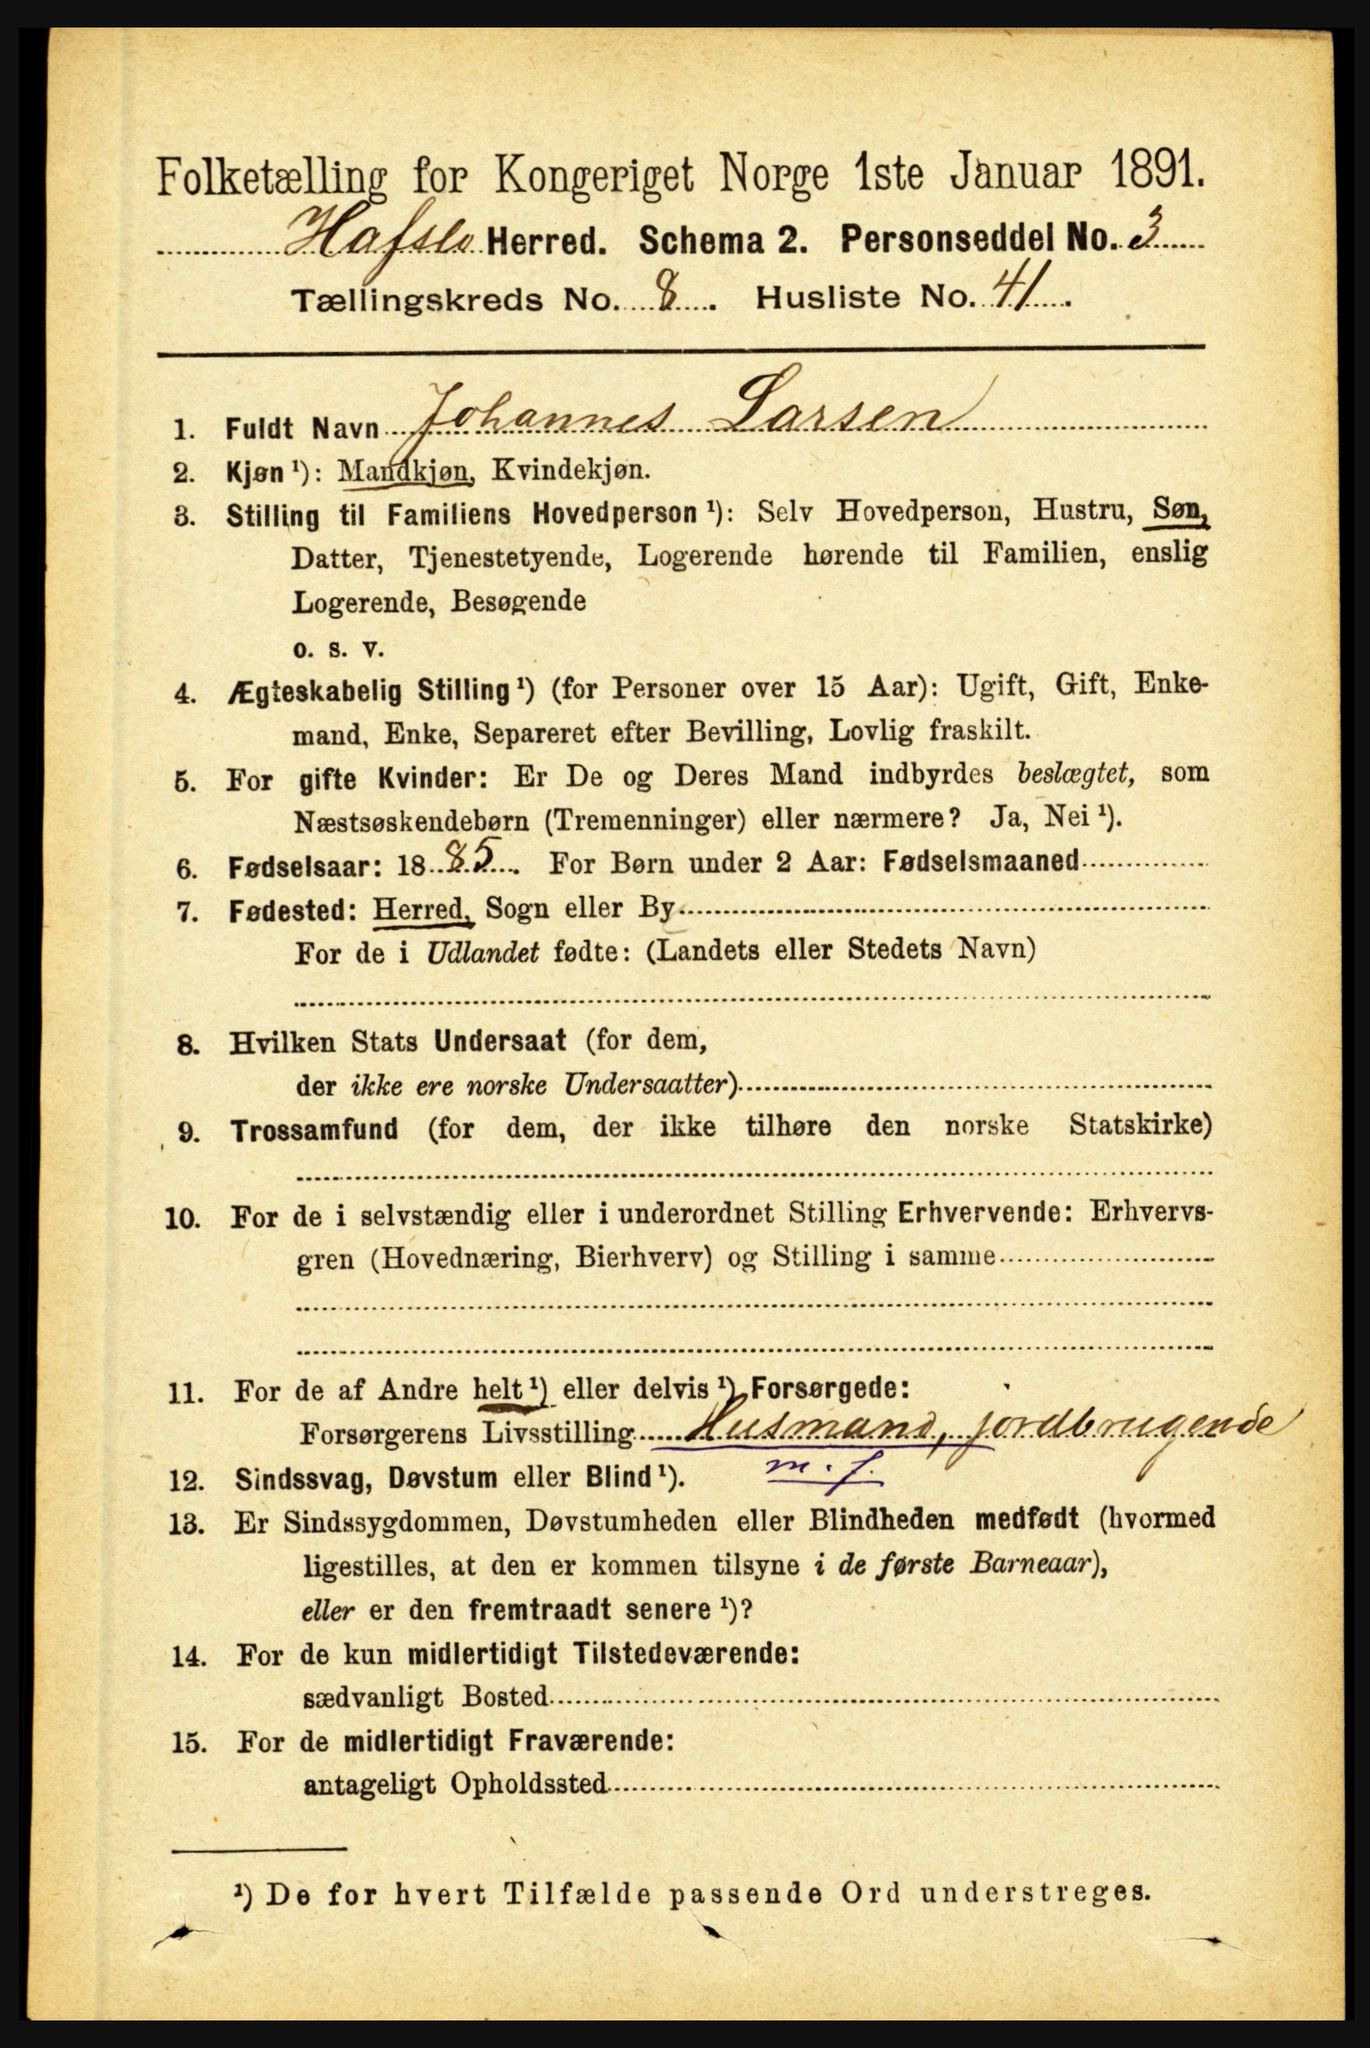 Folketælling for Kongeriget Norge 1ste Januar 1891.
Hafslo Herred. Schema 2. Personseddel No. 3
Tællingskreds No. 8. Husliste No. 41.
1. Fuldt Navn Johannes Larsen
2. Kjøn ¹): Mandkjøn, Kvindekjøn.
3. Stilling til Familiens Hovedperson ¹): Selv Hovedperson, Hustru, Søn,
Datter, Tjenestetyende, Logerende hørende til Familien, enslig
Logerende, Besøgende
o. s. v.
4. Ægteskabelig Stilling ¹) (for Personer over 15 Aar): Ugift, Gift, Enke-
mand, Enke, Separeret efter Bevilling, Lovlig fraskilt.
5. For gifte Kvinder: Er De og Deres Mand indbyrdes beslægtet, som
Næstsøskendebørn (Tremenninger) eller nærmere? Ja, Nei ¹).
6. Fødselsaar: 1885. For Børn under 2 Aar: Fødselsmaaned
7. Fødested: Herred, Sogn eller By
For de i Udlandet fødte: (Landets eller Stedets Navn)
8. Hvilken Stats Undersaat (for dem,
der ikke ere norske Undersaatter)
9. Trossamfund (for dem, der ikke tilhøre den norske Statskirke)
10. For de i selvstændig eller i underordnet Stilling Erhvervende: Erhvervs-
gren (Hovednæring, Bierhverv) og Stilling i samme
11. For de af Andre helt ¹) eller delvis ¹) Forsørgede:
Forsørgerens Livsstilling Husmand, jordbrugende
m. f.
12. Sindssvag, Døvstum eller Blind ¹).
13. Er Sindssygdommen, Døvstumheden eller Blindheden medfødt (hvormed
ligestilles, at den er kommen tilsyne i de første Barneaar),
eller er den fremtraadt senere ¹)?
14. For de kun midlertidigt Tilstedeværende:
sædvanligt Bosted
15. For de midlertidigt Fraværende:
antageligt Opholdssted
¹) De for hvert Tilfælde passende Ord understreges.